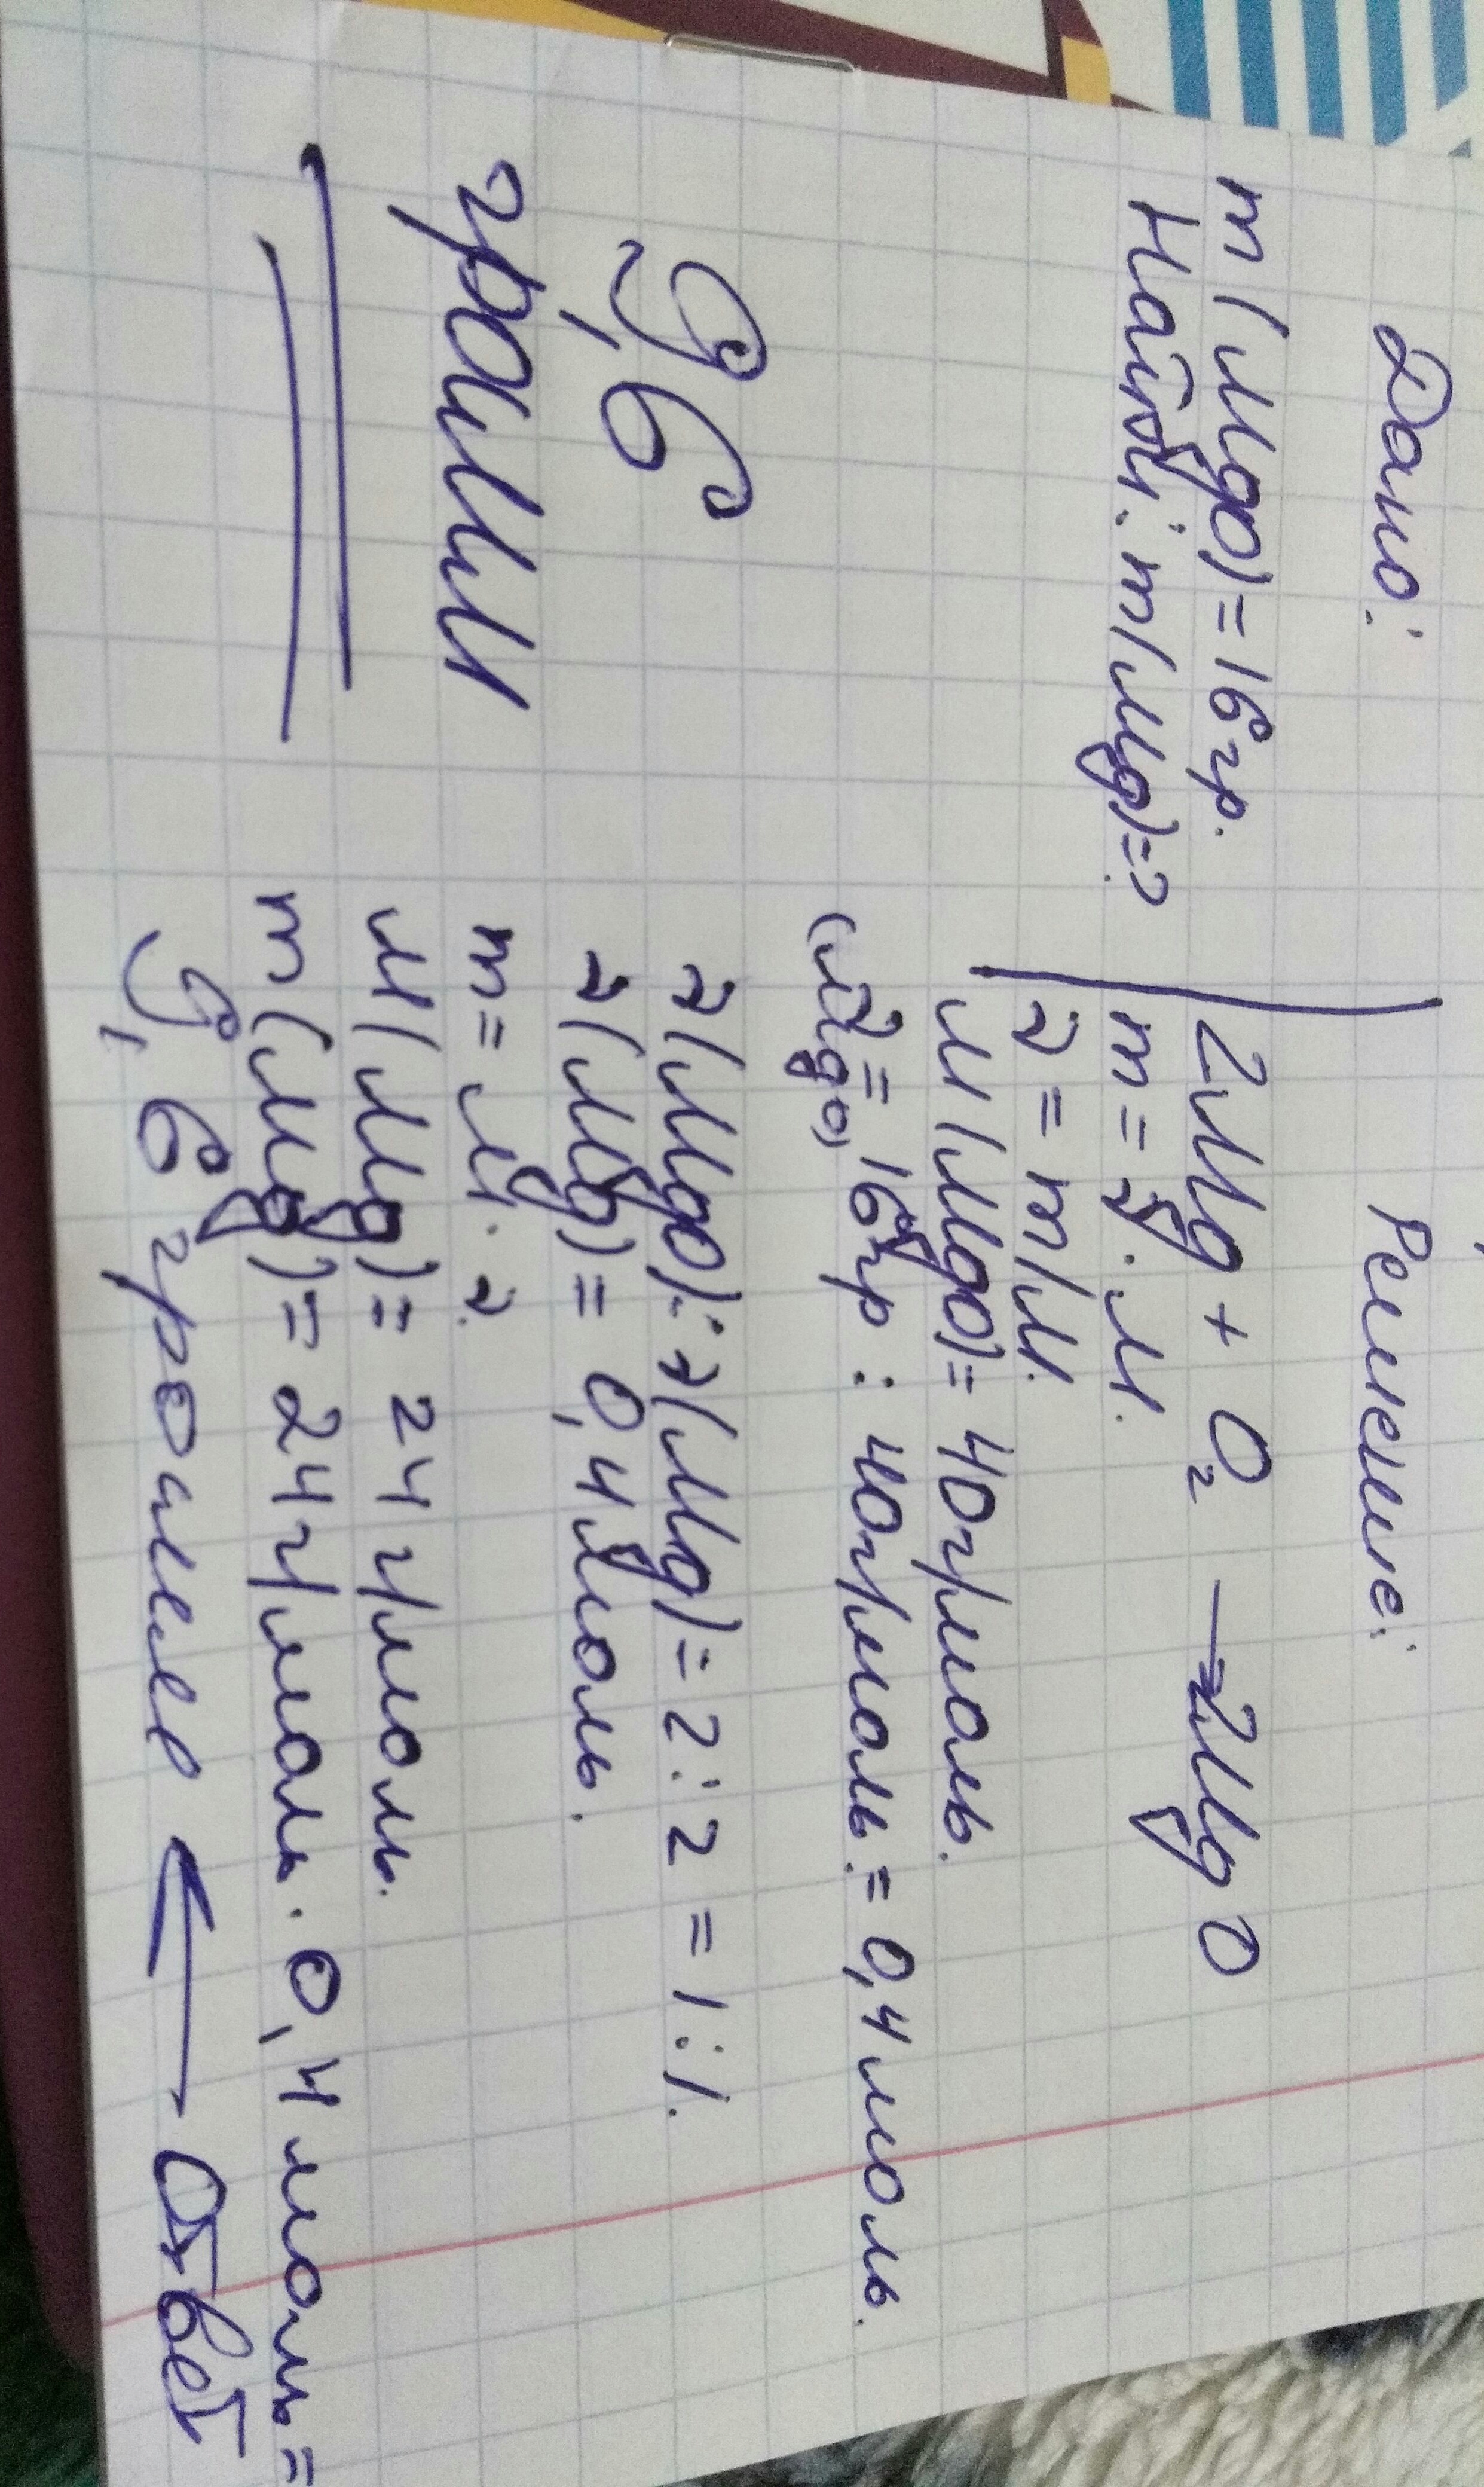 Дано:
m(MgO)=16гр.
Найти: m(Mg)=?
9,6
грамм
Решение:
2Mg + O₂ → 2MgO
m = ν · M.
ν = m/M.
M(MgO)= 40г/моль.
ν = 16гр : 40г/моль = 0,4 моль.
(MgO)
ν(MgO):ν(Mg)=2:2 = 1:1.
ν(Mg)= 0,4моль.
m= M · ν.
M(Mg)= 24 г/моль.
m(Mg)= 24г/моль · 0,4 моль=
9,6 грамм ← Ответ